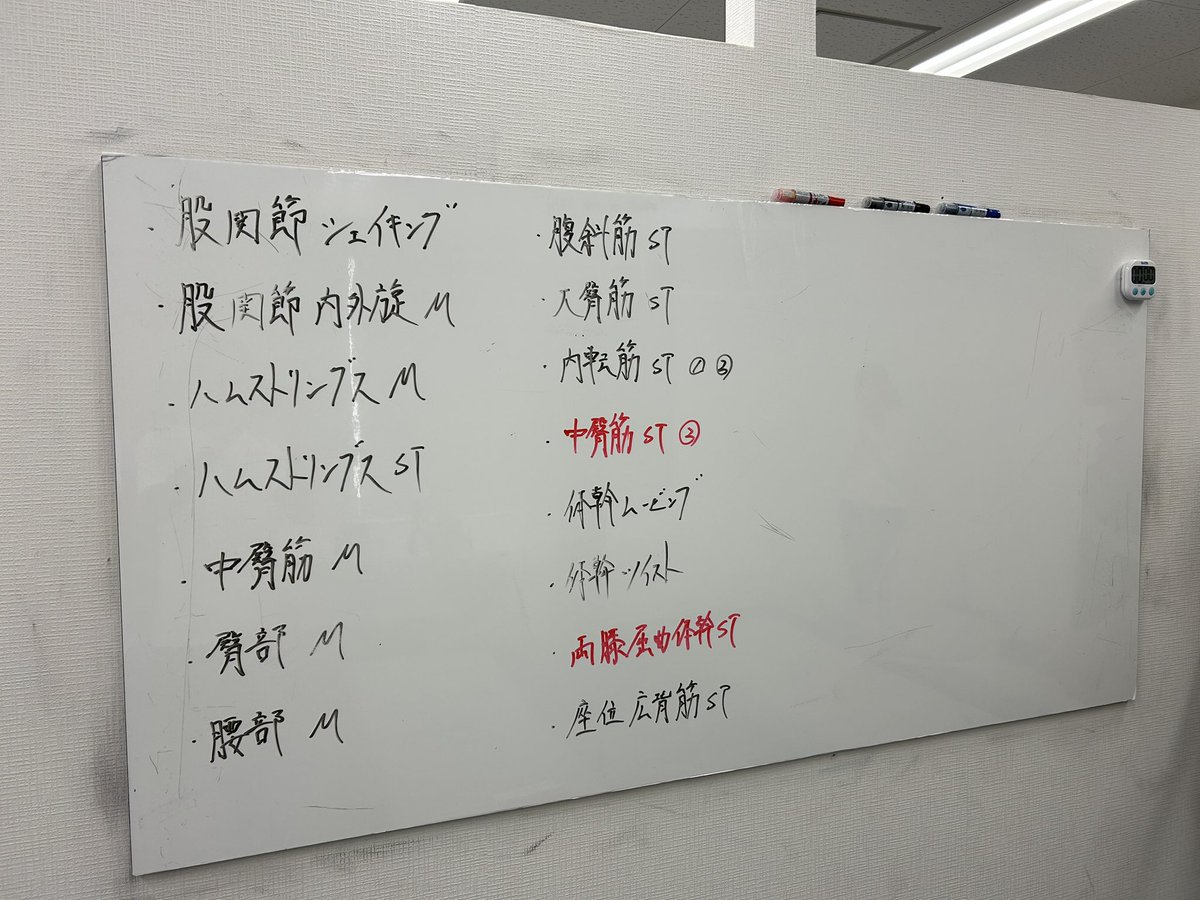 ・股関節 シェイキング
・股関節 内外旋 M
・ハムストリングス M
・ハムストリングス ST
・中臀筋 M
・臀部 M
・腰部 M
・腹斜筋 ST
・大臀筋 ST
・内転筋 ST ① ③
・中臀筋 ST ③
・体幹ムービング
・体幹ツイスト
・両膝屈曲体幹ST
・座位 広背筋 ST